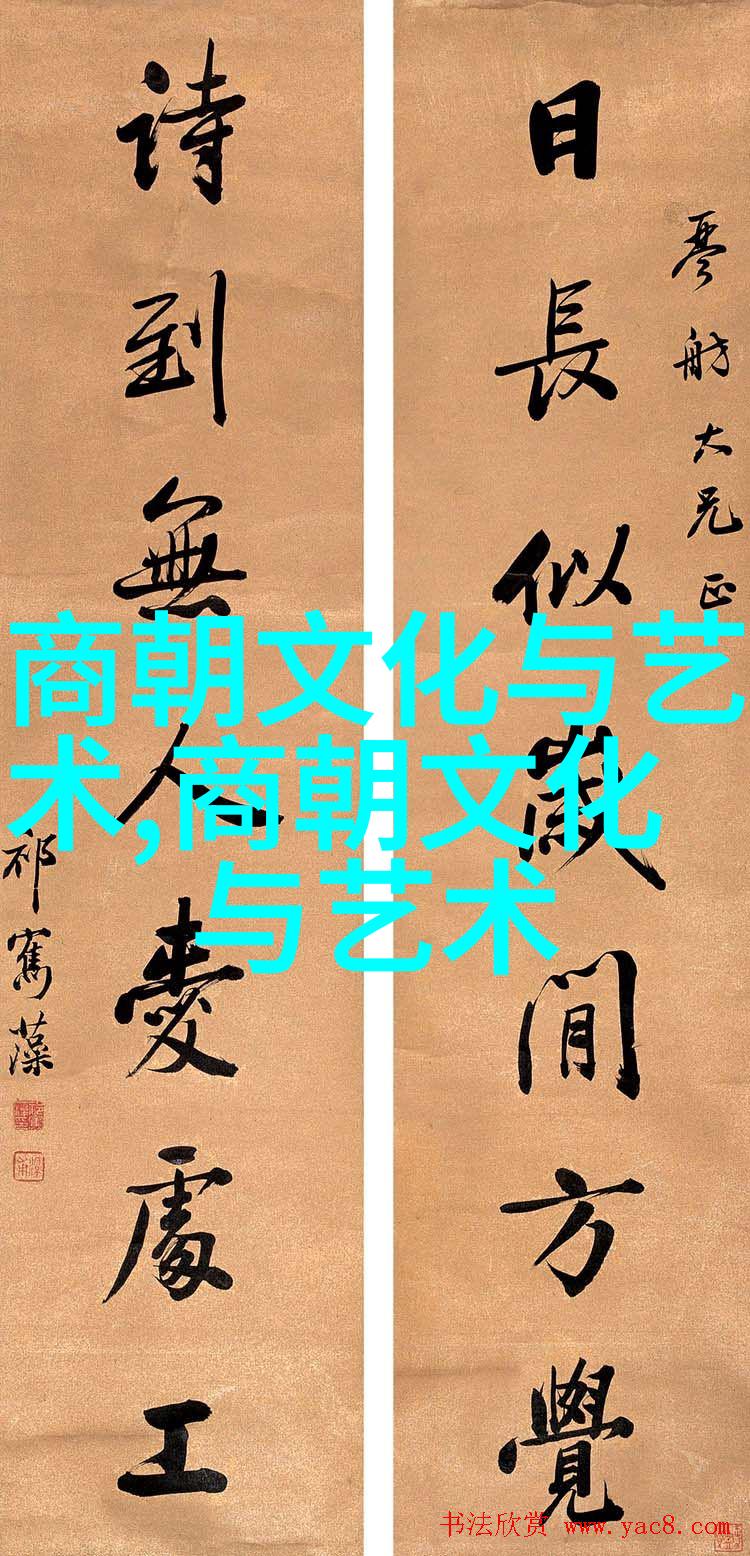 日長似歲閒方覺
琴舫大兄正
詩到無人愛處工
祁寯藻
商朝文化与艺
术,商朝文化
与艺术
书法欣赏 www.yac8.com